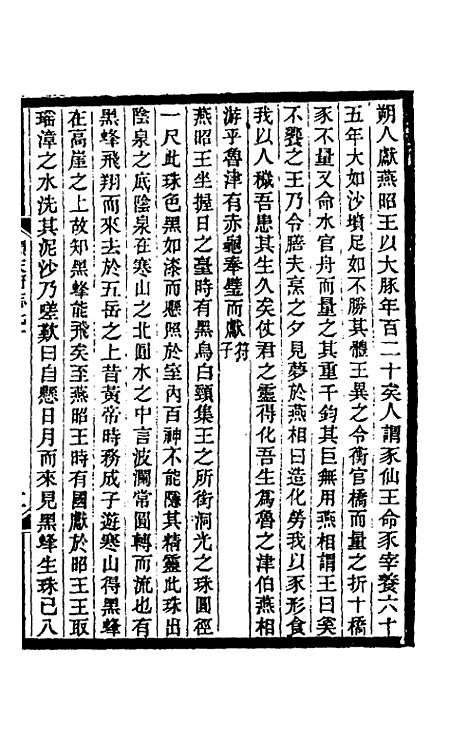 朔人獻燕昭王以大豚年百二十矣人謂豕仙王命豕宰養六十
五年大如沙墳足如不勝其體王異之令衡官橋而量之折十橋
豕不量又命水官舟而量之其重千鈞其巨無用燕相謂王曰奚
不饗之王乃令膳夫烹之夕見夢於燕相曰造化勞我以豕形食
我以人穢吾患其生久矣仗君之靈得化吾生爲魯之津伯燕相
游乎魯津有赤龜奉璧而獻符子
燕昭王坐握日之臺時有黑鳥白頸集王之所銜洞光之珠圓徑
一尺此珠色黑如漆而懸照於室內百神不能隱其精靈此珠出
陰泉之底陰泉在寒山之北圓水之中言波瀾常圓轉而流也有
黑蜂飛翔而來去於五岳之上昔黃帝時務成子遊寒山得黑蜂
在高崖之上故知黑蜂能飛矣至燕昭王時有國獻於昭王王取
瑤漳之水洗其泥沙乃嗟歎曰自懸日月而來見黑蜂生珠已八